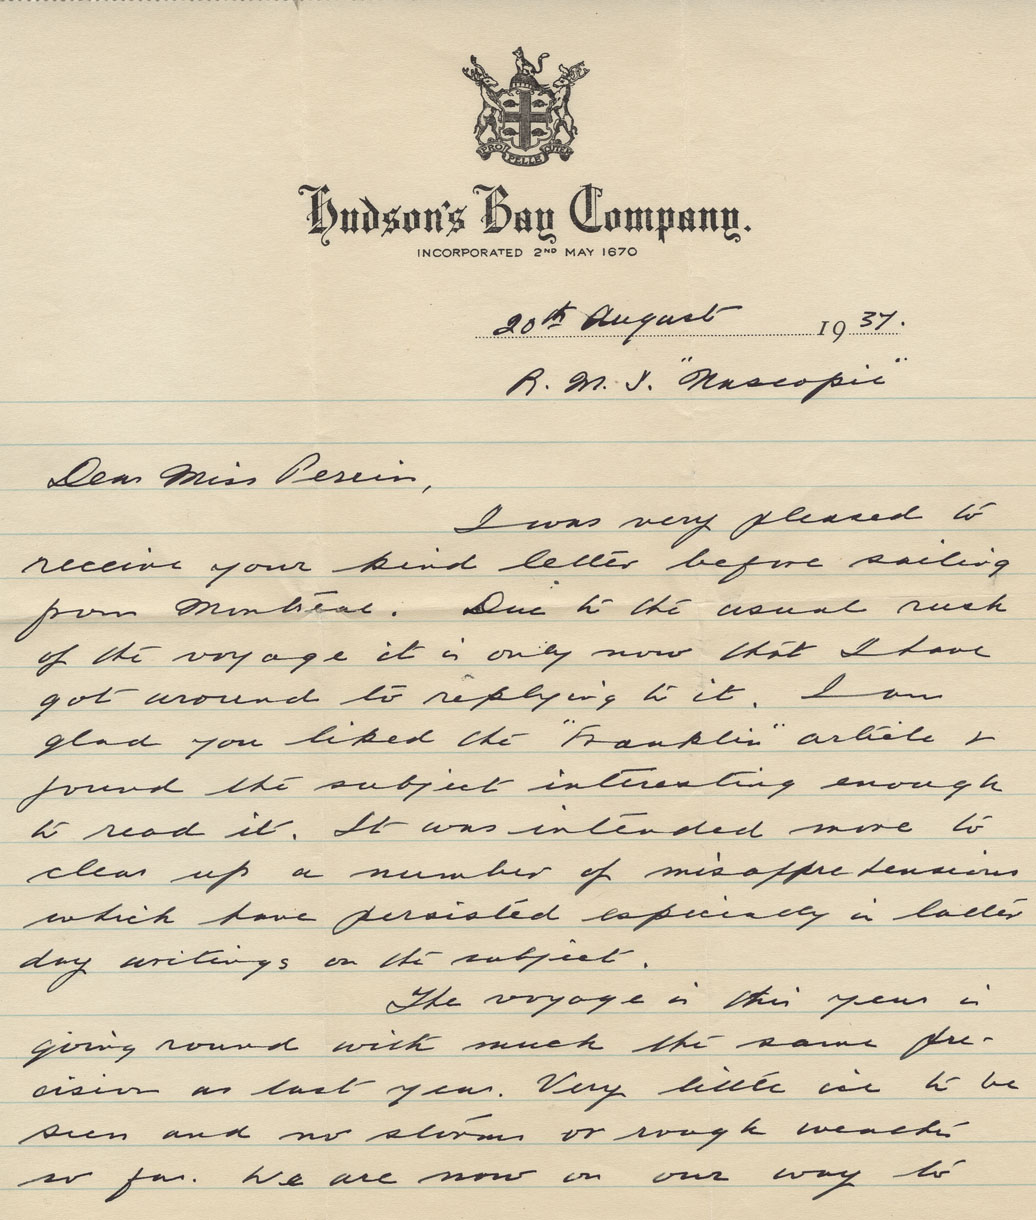 PRO PELLE CUTEM
Hudson's Bay Company.
INCORPORATED 2ND MAY 1670
20th August 1937.
R. M. S. "Nascopie"
Dear Miss Perrin,
I was very pleased to
receive your kind letter before sailing
from Montreal. Due to the usual rush
of the voyage it is only now that I have
got around to replying to it. I am
glad you liked the "Franklin" article &
found the subject interesting enough
to read it. It was intended more to
clear up a number of misapprehensions
which have persisted especially in latter
day writings on the subject.
The voyage is this year is
going round with much the same pre-
cision as last year. Very little ice to be
seen and no storms or rough weather
so far. We are now on our way to